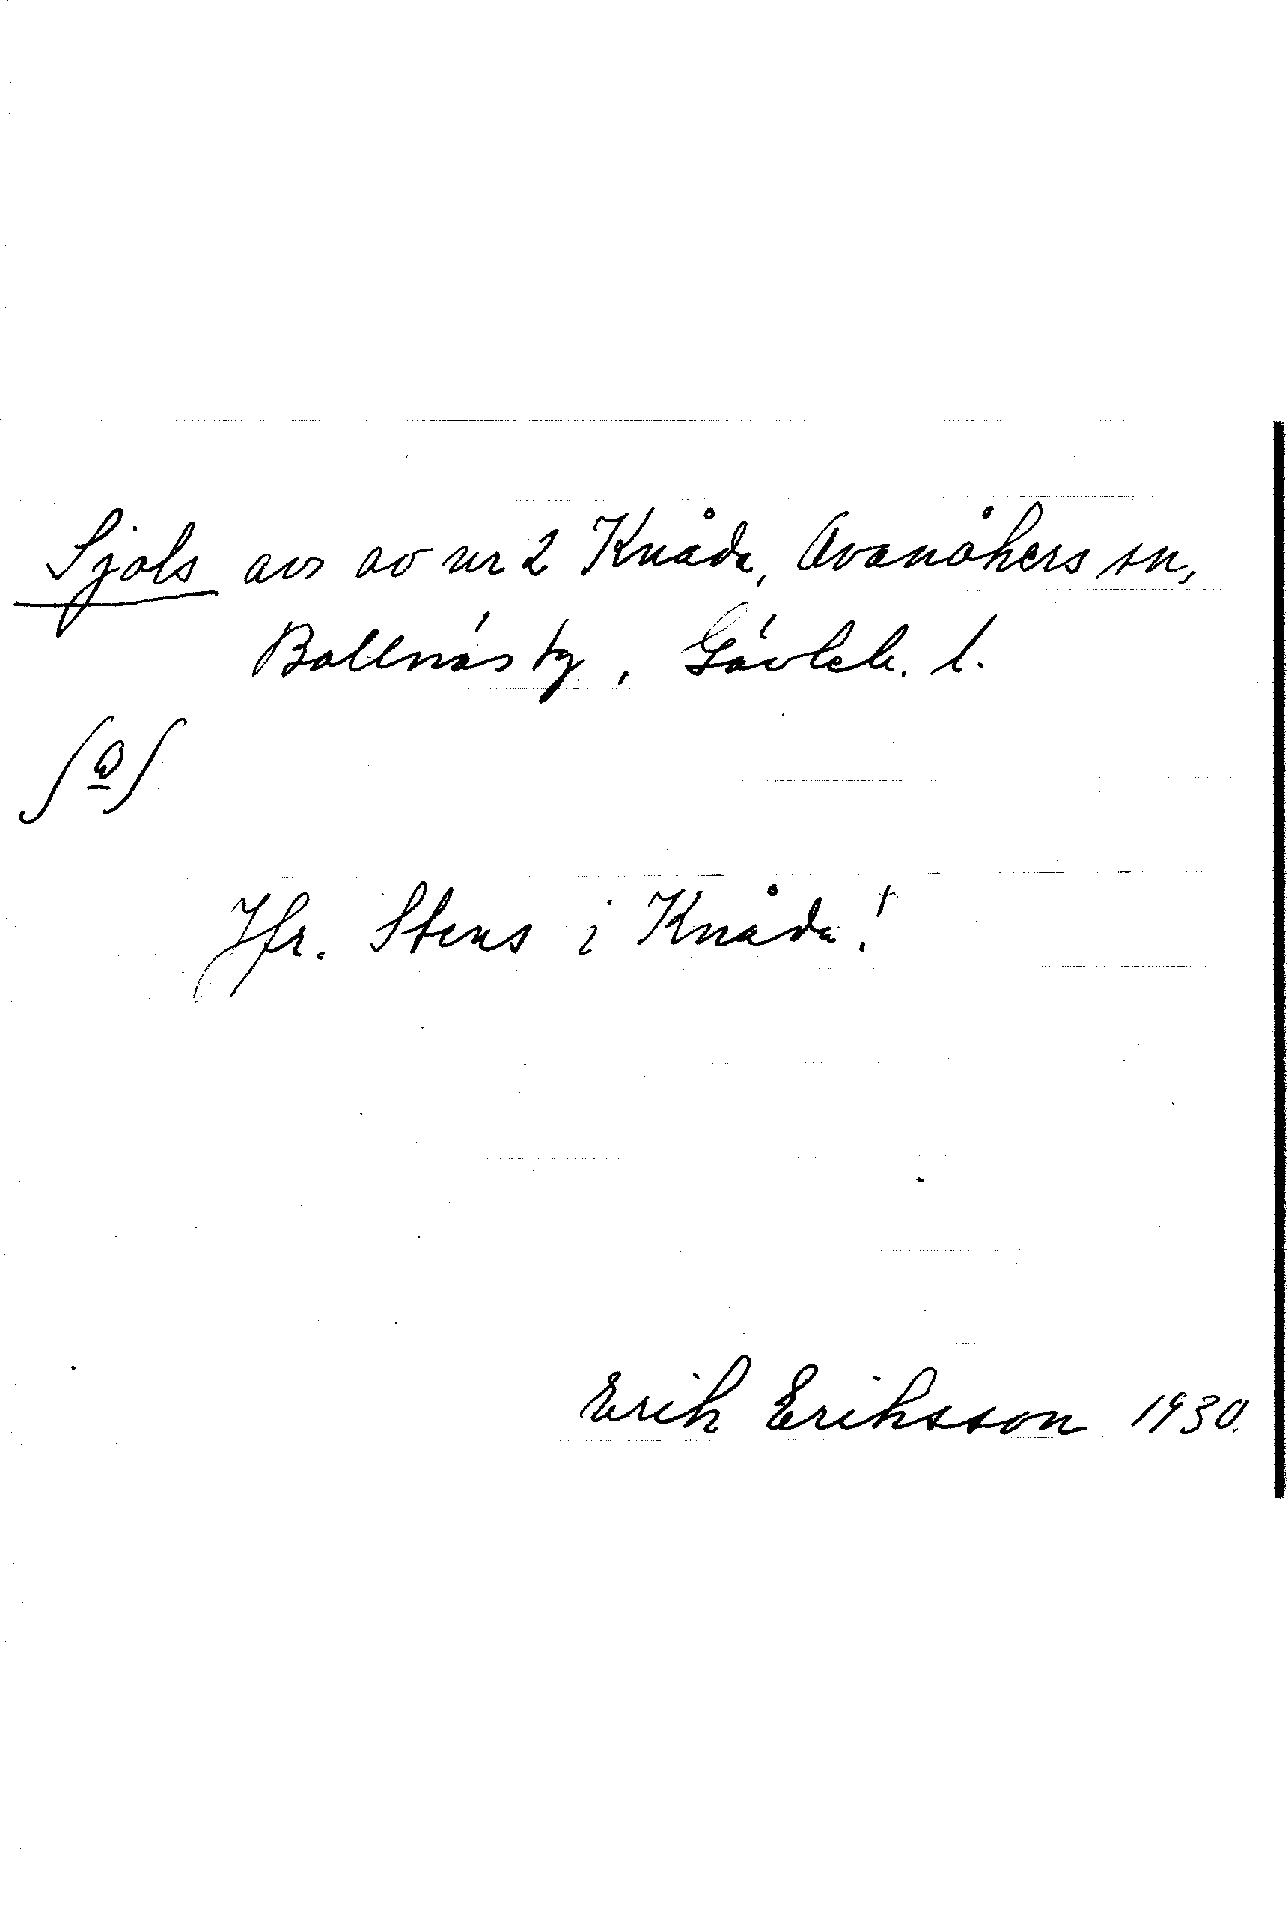 Sjols avs av nr 2 Knåda, Ovanåkers sn,
Bollnäs tg, Gävleb. l.
Jfr. Stens i Knåda!
Erik Eriksson 1930.